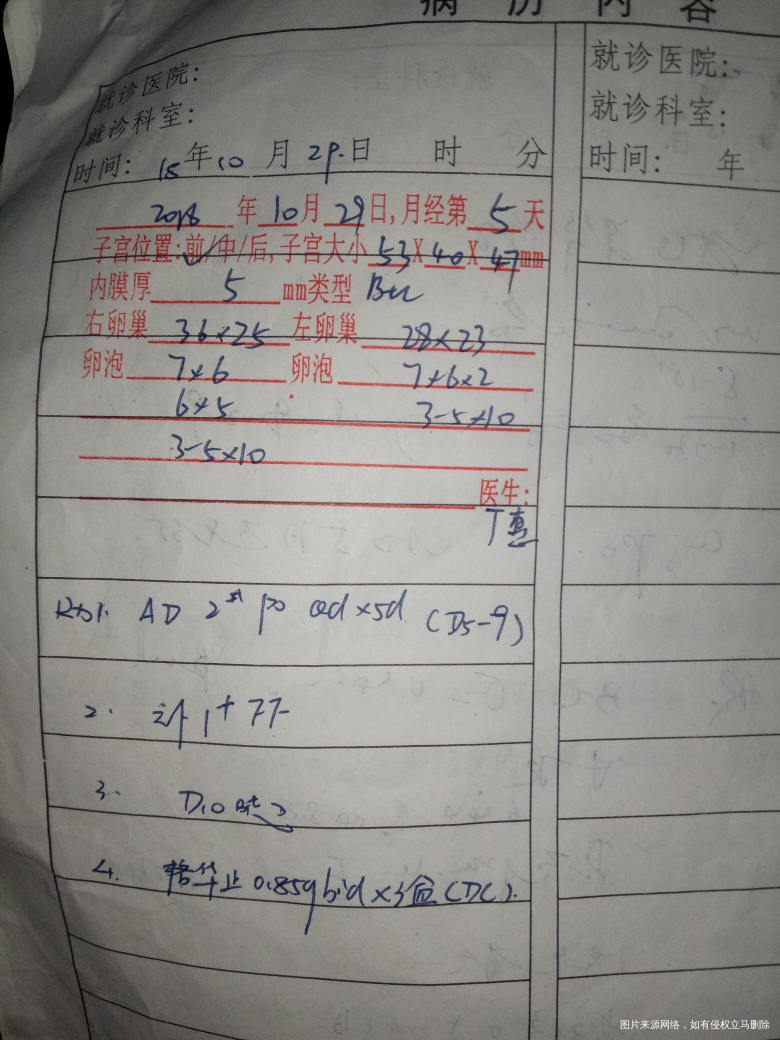 病 历 内 容
就诊医院:
就诊科室:
时间: 18年10月29.日 时 分
2018年10月29日,月经第5天
子宫位置:前/中/后,子宫大小53X40X47mm
内膜厚5mm类型
右卵巢36×25 左卵巢28×23
卵泡7×6 卵泡7×6×2
6×5 3-5×10
3-5×10
医生:
丁
1. AD 2 po qd×5d (D5-9)
2.
3. D10
4. 格华止0.85g bid×3盒
就诊医院:
就诊科室:
时间: 年
图片来源网络，如有侵权立马删除